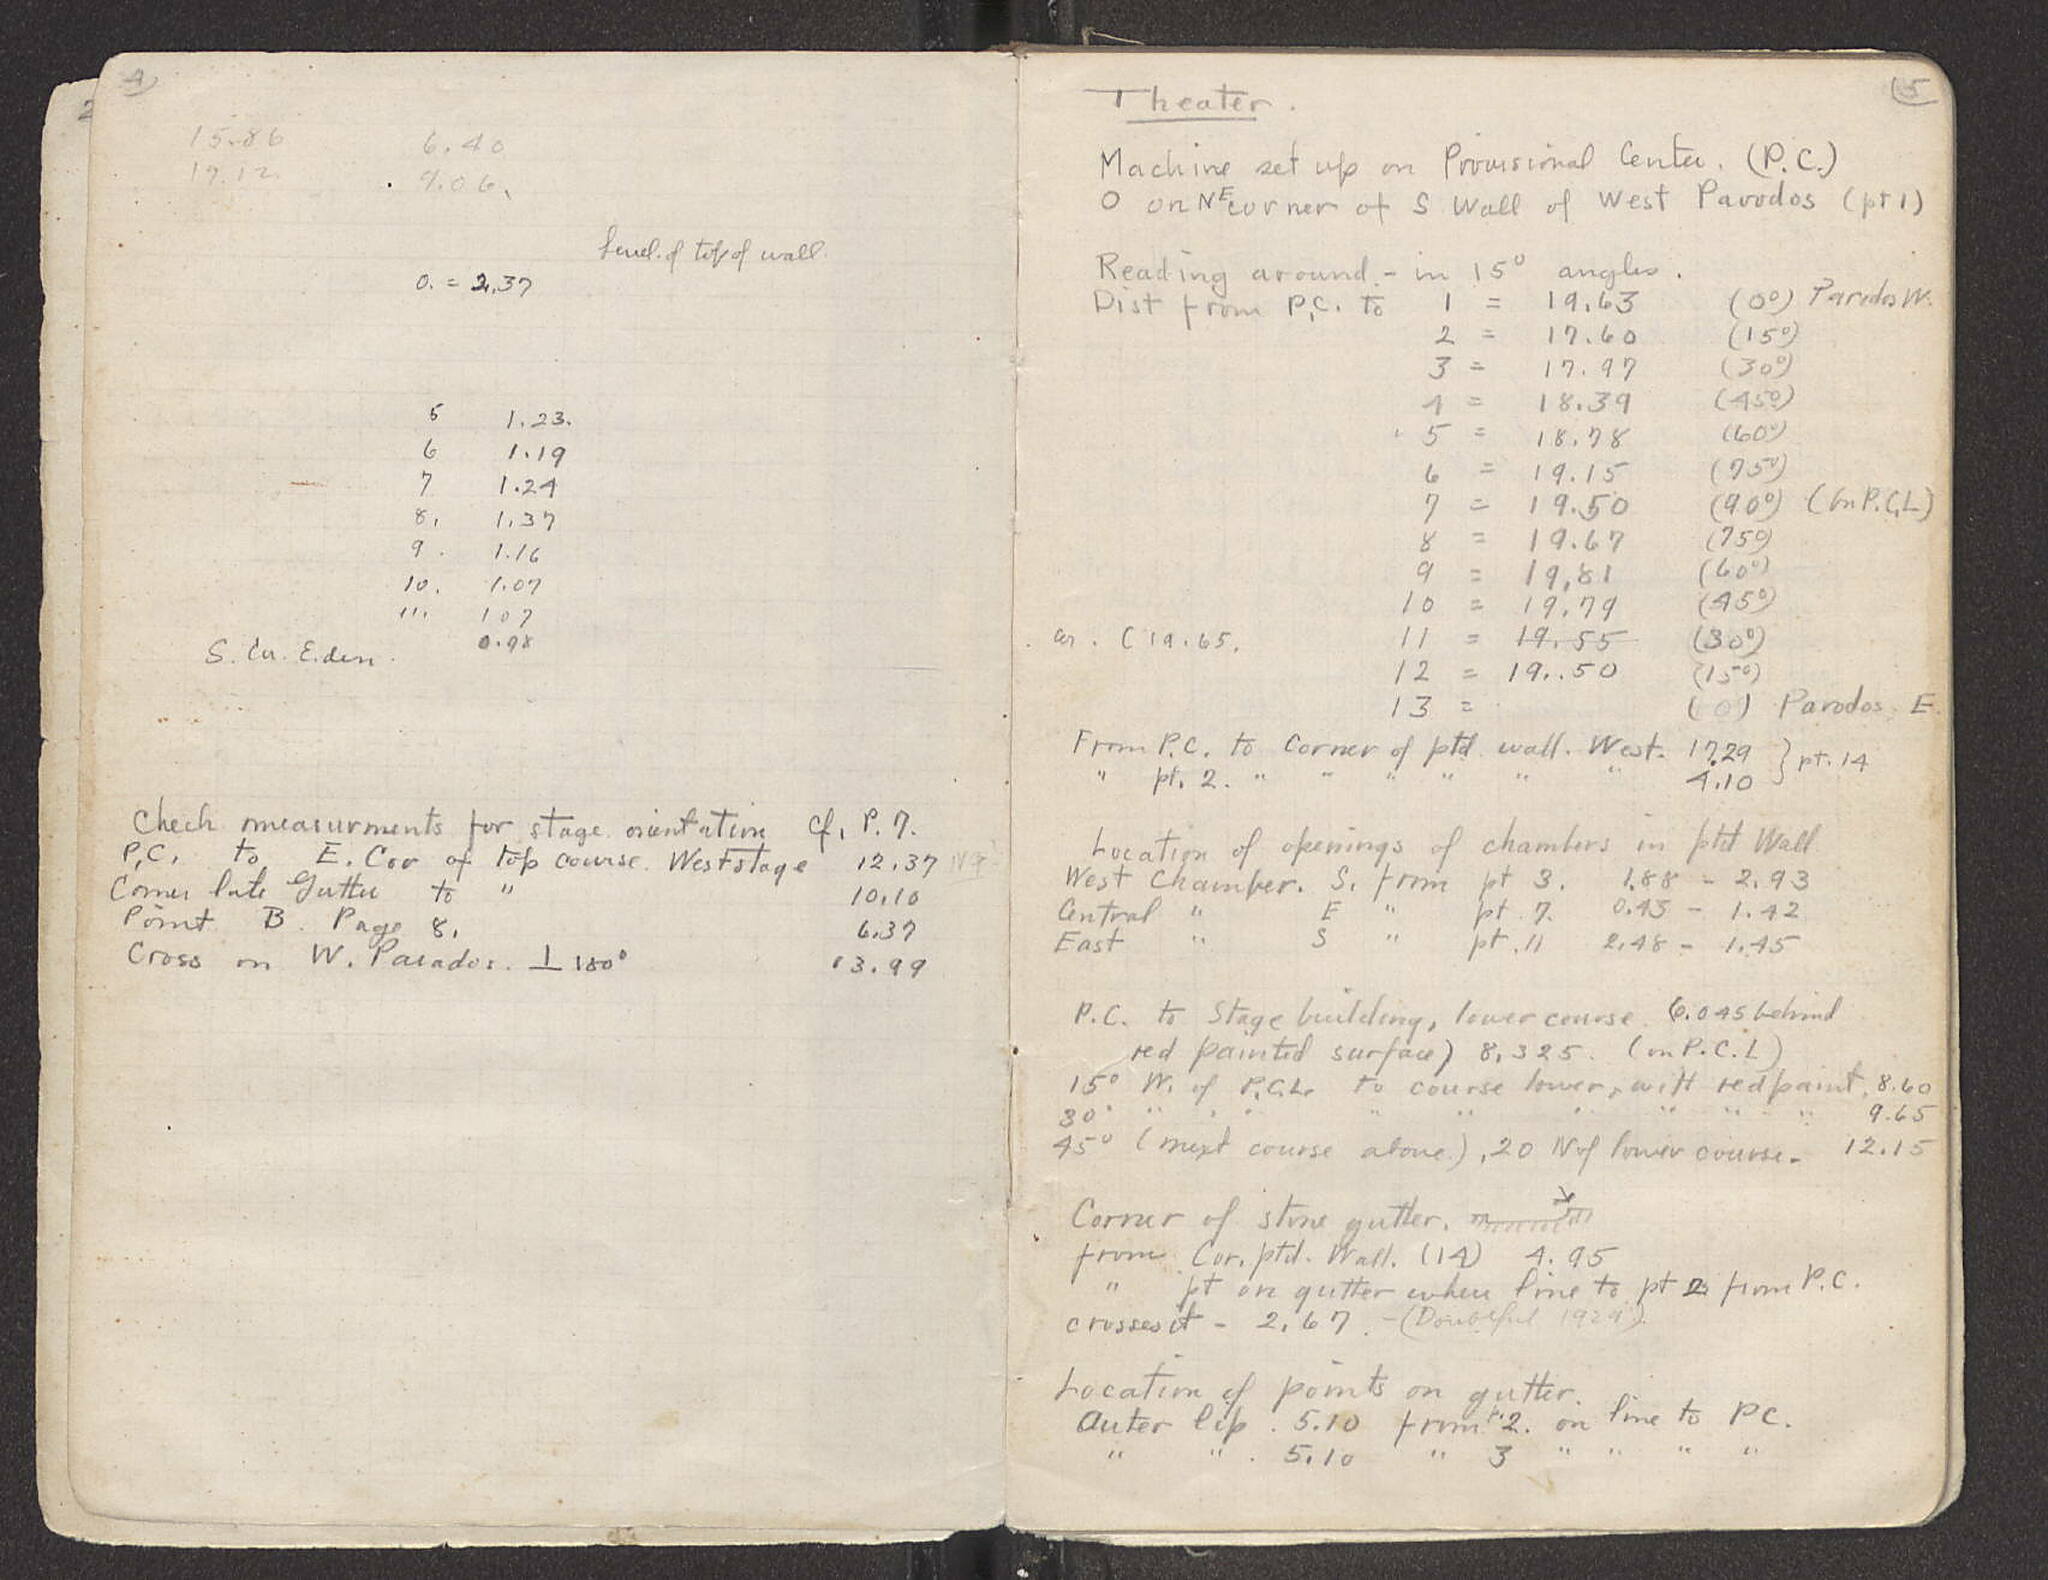 4
15.86 6.40
17.12 9.06
Level of top of wall
0. = 2.37
5 1.23.
6 1.19
7 1.24
8. 1.37
9. 1.16
10. 1.07
11. 107
0.98
S. Cor. E. den.
Check measurments for stage orientation cf. P. 7.
P.C. to E. Cor of top course West stage 12.37
Corner late Gutter to " 10.10
Point B. Page 8. 6.37
Cross on W. Parados. ⊥ 180° 13.99
5
Theater.
Machine set up on Provisional Center. (P.C.)
O on NE corner of S Wall of West Parodos (pt 1)
Reading around - in 15° angles.
Dist from P.C. to 1 = 19.63 (0°) Parodos W.
2 = 17.60 (15°)
3 = 17.97 (30°)
4 = 18.39 (45°)
5 = 18.78 (60°)
6 = 19.15 (75°)
7 = 19.50 (90°) (on P.C.L)
8 = 19.67 (75°)
9 = 19.81 (60°)
10 = 19.79 (45°)
cor. (19.65. 11 = 19.55 (30°)
12 = 19..50 (15°)
13 = (0) Parodos E.
From P.C. to Corner of ptd wall. West. 17.29 } pt. 14
" pt. 2. " " " " " " 4.10
Location of openings of chambers in ptd Wall
West Chamber. S. from pt 3. 1.88 - 2.93
Central " E " pt. 7. 0.43 - 1.42
East " S " pt. 11 2.48 - 1.45
P.C. to Stage building, lower course 0.045 behind
red painted surface) 8,325. (on P.C.L)
15° W. of P.C.L. to course lower, with red paint. 8.60
30° " " " " " " " " " 9.65
45° (next course above), 20 N of lower course - 12.15
Corner of stone gutter.
from Cor. ptd. Wall. (14) 4.95
" pt on gutter when line to pt 2 from P.C.
crosses it - 2.67. - (Doubtful 1929).
Location of points on gutter.
Outer lip. 5.10 from pt. 2. on line to PC.
" " . 5.10 " 3 " " " "